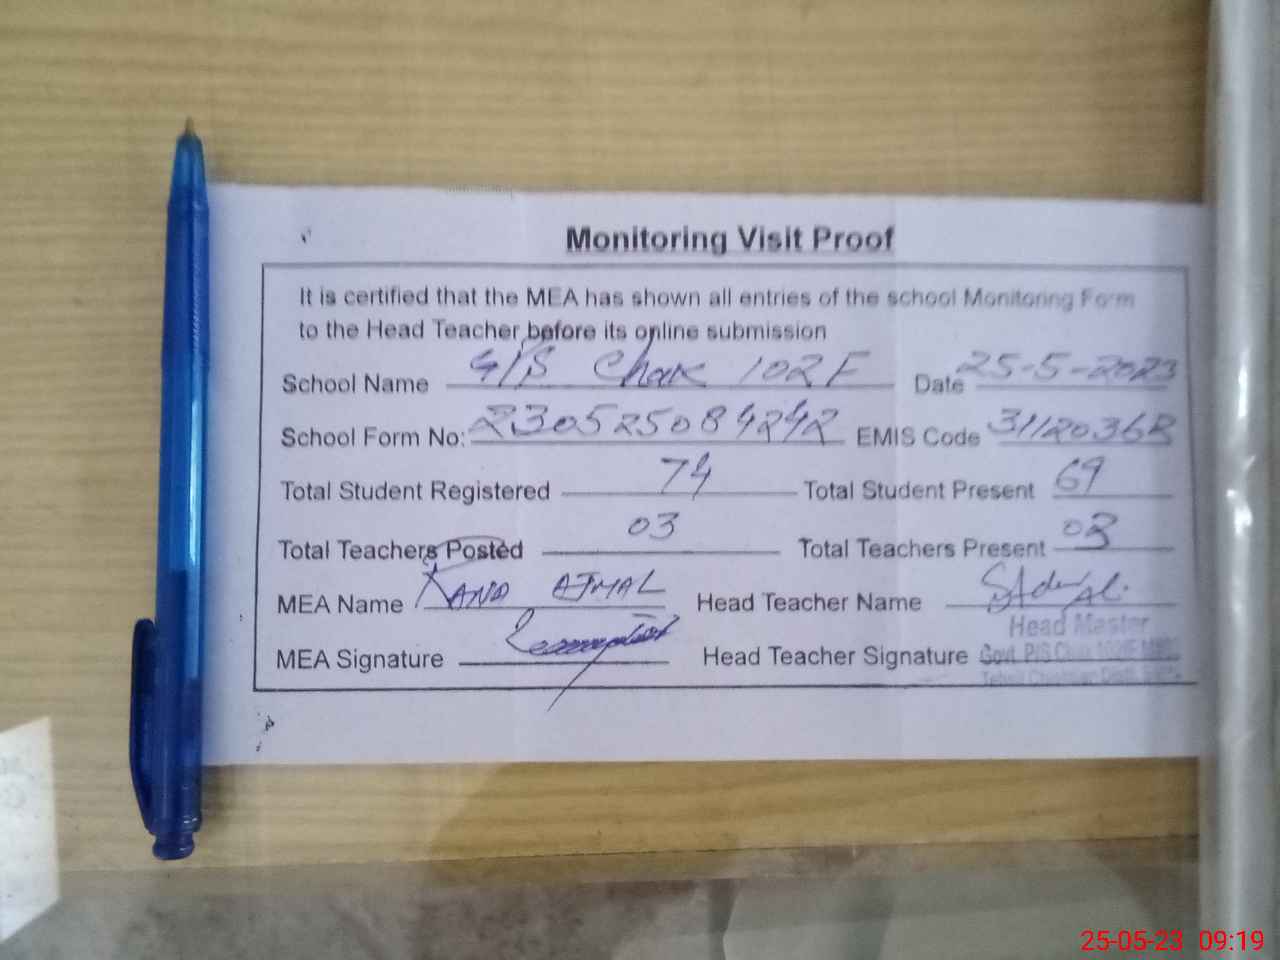 Monitoring Visit Proof
It is certified that the MEA has shown all entries of the school Monitoring Form
to the Head Teacher before its online submission
School Name G/PS Chak 102F Date 25-5-2023
School Form No: 230525084242 EMIS Code
Total Student Registered 74 Total Student Present 69
Total Teachers Posted 03 Total Teachers Present 03
MEA Name AJMAL Head Teacher Name
Head Master
MEA Signature Head Teacher Signature Govt. P/S Chak 102/F
25-05-23 09:19